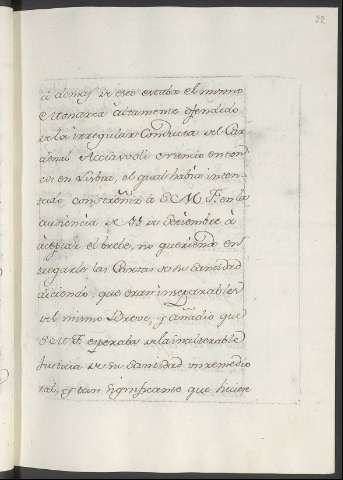 22
a demas de esto estaba el mismo
Monarca altamente ofendido
de la irregular Conducta del Car
denal Acciavoli Nuncio enton
ces en Lisboa, el qual habia inten
tado constreñir à S. M. F. en la
audiencia de 11 de Deciembre à
aceptar el breve, no queriendo en
tregarle las Cartas de su Santidad
diciendo, que eran inseparables
del mismo Breve, y añadio que
S. M. F. esperaba de la inalterable
Justicia de su Santidad un remedio
tal, y tan significante que hiciese